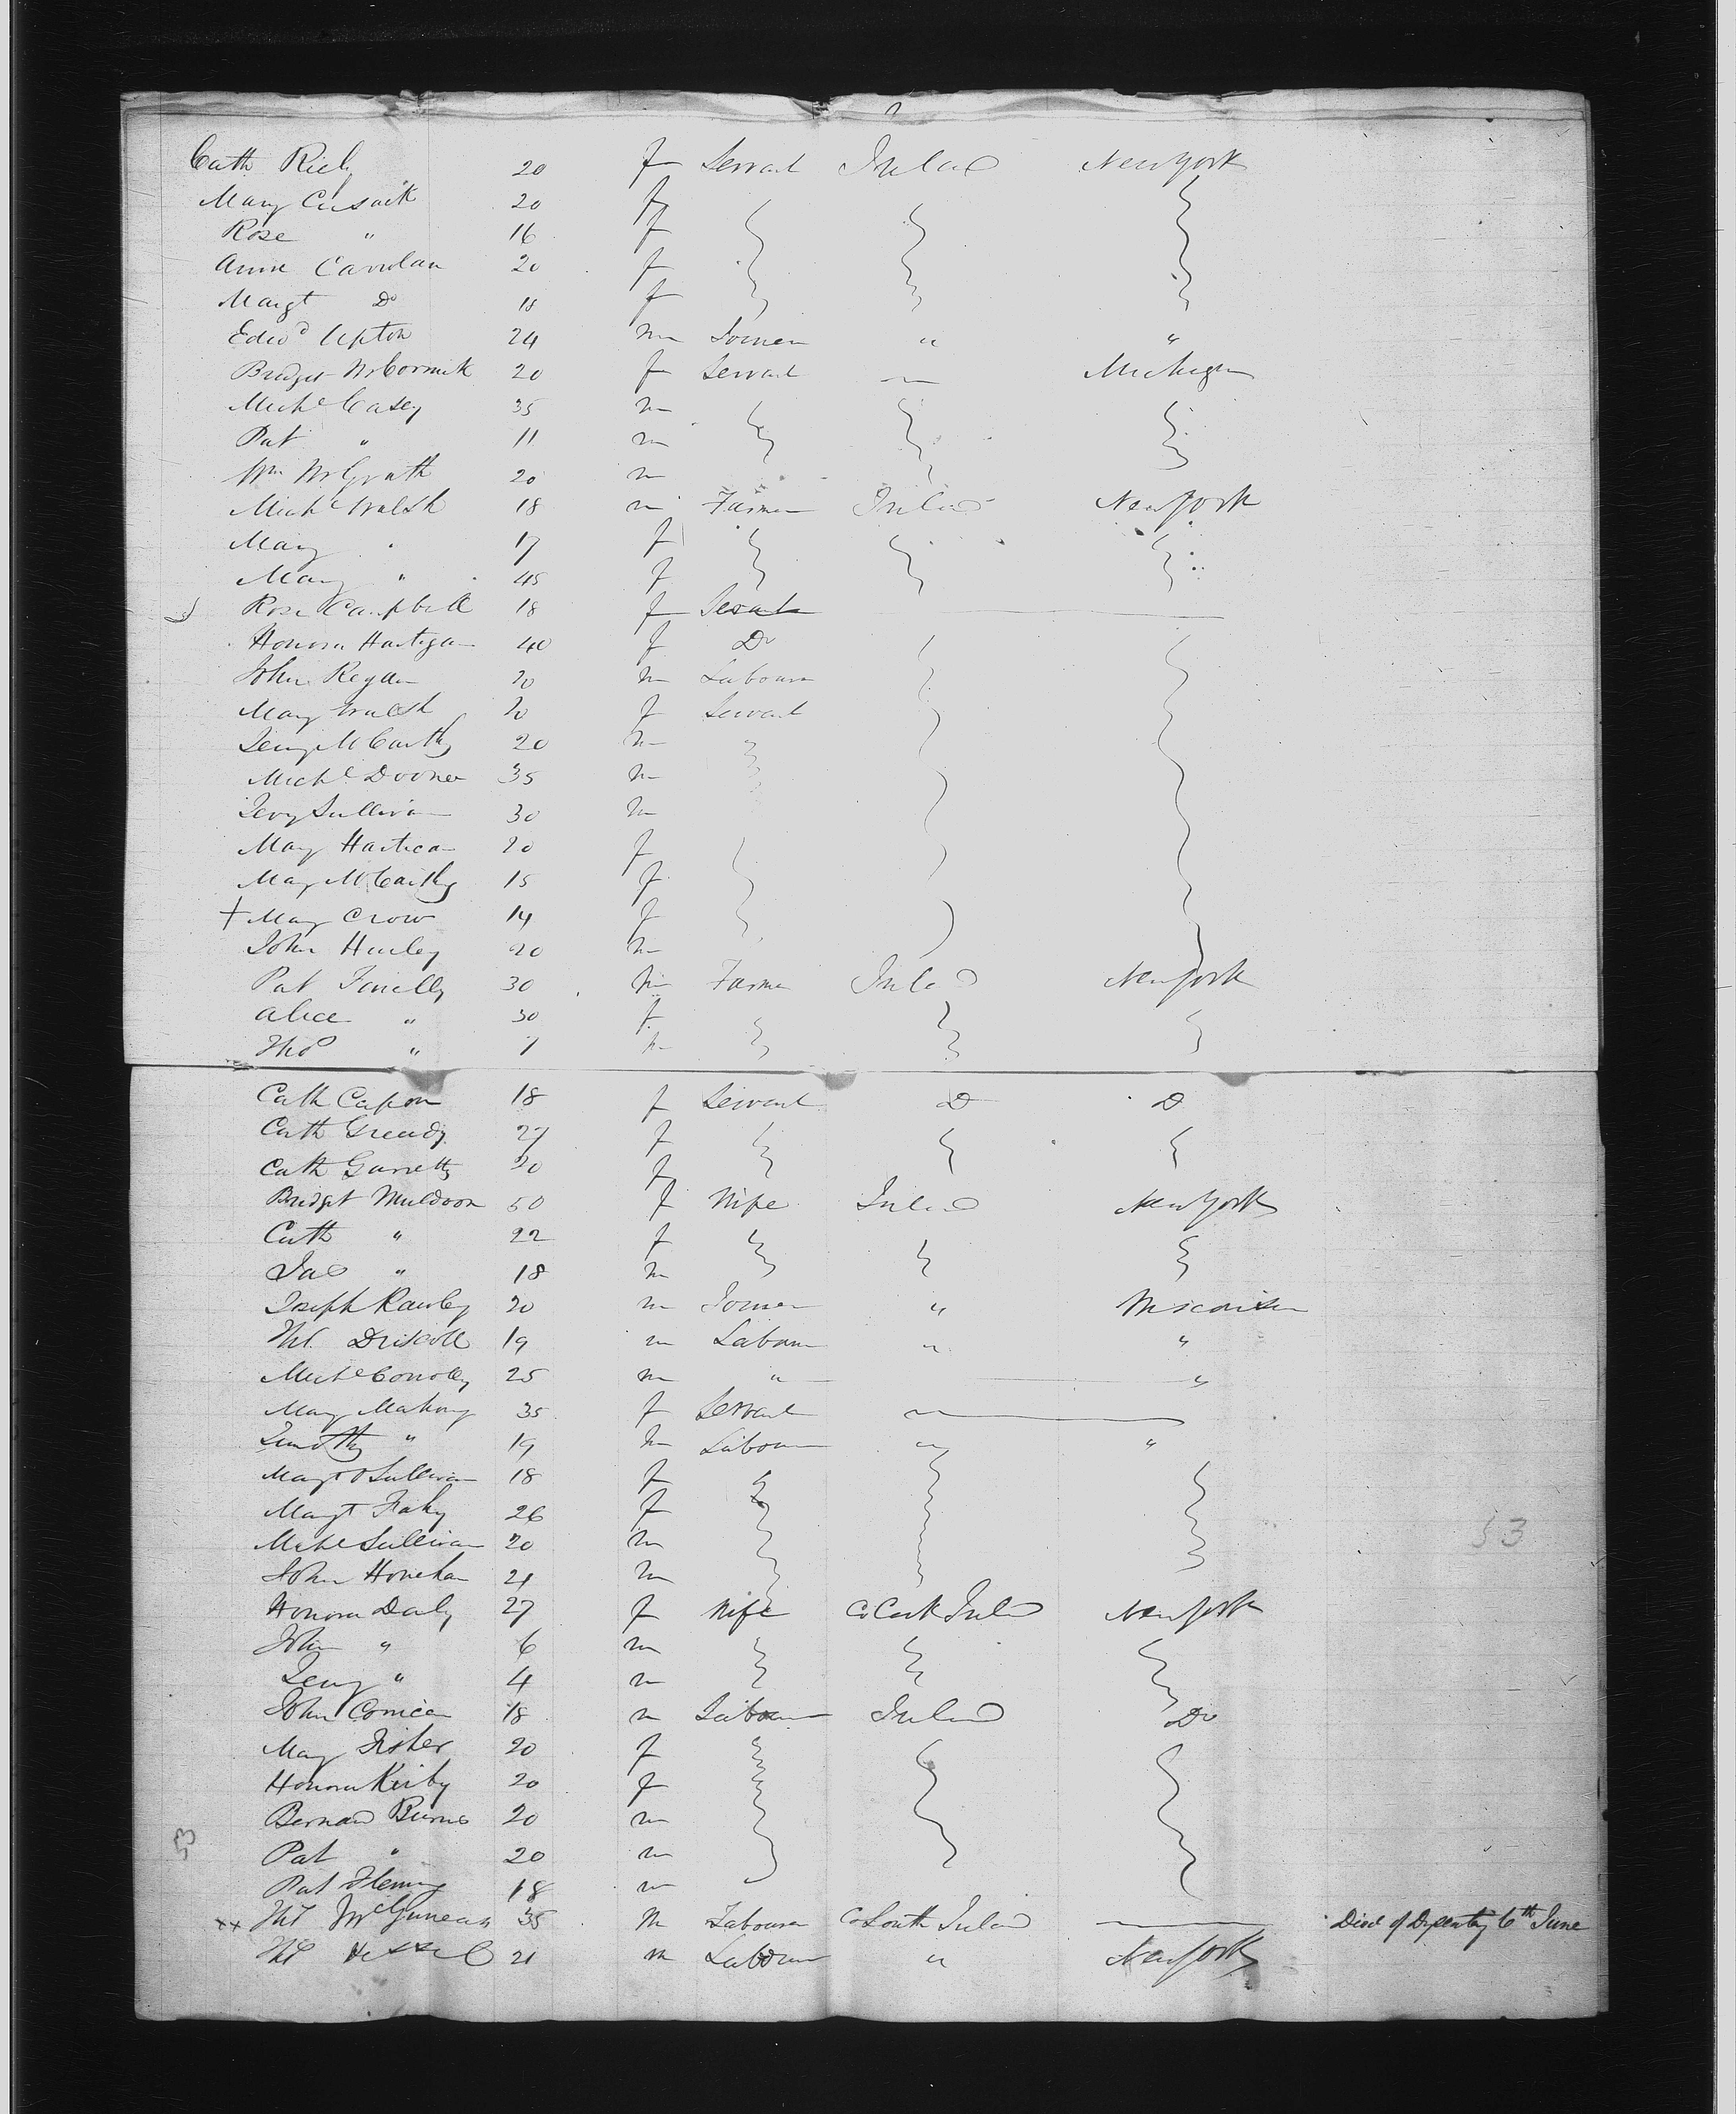 Cath Rich 20 f Servant Ireland New York
Mary Cusack 20 f
Rose " 16 f
Anne Carolan 20 f
Margt Do 18 f
Edwd Upton 24 m Joiner " "
Bridget McCormick 20 f Servant Michigan
Michl Casey 35 m
Pat " 11 m
Wm McGrath 20 m
Michl Walsh 18 m Farmer Ireland New York
Mary " 17 f
Mary " 45 f
Rose Campbell 18 f Servant
Honora Hartigan 40 f Do
John Regan 20 m Labourer
Mary Walsh 20 f Servant
Denis McCarthy 20 m
Michl Dooner 35 m
Jery Sullivan 30 m
Mary Hartican 20 f
Mary McCarthy 15 f
+ Mary Crow 14 f
John Hurley 20 m
Pat Finelly 30 m Farmer Ireland New York
Alice " 30 f
Thos " 7 m
Cath Capon 18 f Servant Do Do
Cath Greedy 27 f
Cath Garretty 30 f
Bridget Muldoon 50 f Wife Ireland New York
Cath " 22 f
Jas " 18 m
Joseph Rawley 20 m Joiner " Wisconsin
Thos Driscoll 19 m Labourer " "
Michl Conolly 25 m " "
Mary Mahony 35 f Servant
Timothy " 19 m Labourer " "
Margt O Sullivan 18 f
Margt Fahy 26 f
Michl Sullivan 20 m
John Honehan 21 m
53
Honora Daly 27 f Wife Co Cork Ireland New York
John " 6 m
Denis " 4 m
John Corrican 18 m Labourer Ireland Do
Mary Fisher 20 f
Honora Kirby 20 f
Bernard Burns 20 m
53
Pat " 20 m
Pat Fleming 18 m
xx Thos McGunean 35 m Labourer Co Louth Ireland Died of Dysentry 6th June
Thos Hessel 21 m Labourer " New York